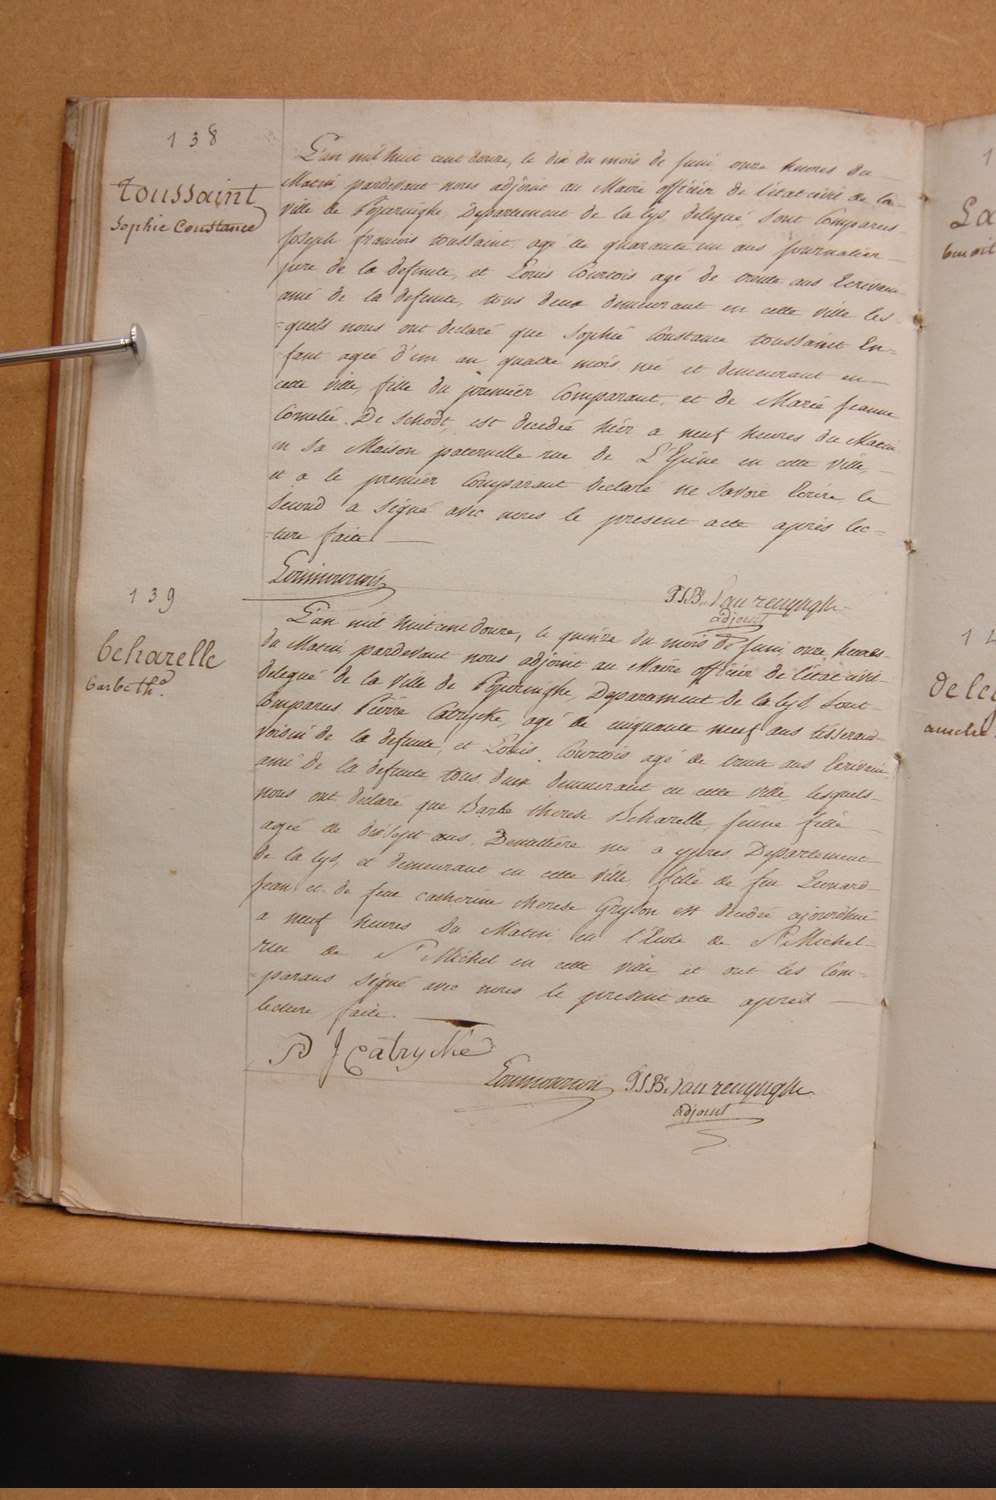 138
Toussaint
Sophie Constance
L'an mil huit cent douze, le dix du mois de juin onze heures du
Matin, pardevant nous adjoint au Maire officier de l'etat civil de la
ville de Poperinghe, Departement de la Lys, delegué sont Comparus
Joseph francois toussaint, agé de quarante un ans journalier
pere de la defunte, et Louis Courtois agé de trente ans Ecrivain
ami de la defunte, tous deux demeurant en cette ville les-
=quels nous ont declaré que Sophie Constance toussaint En=
fant agée d'un an quatre mois née et demeurant en
cette ville, fille du premier Comparant, et de Marie jeanne
Cornelie De Schodt, est decedée hier a neuf heures du Matin
en sa Maison paternelle rue de L'Epine en cette ville
et a le premier Comparant declaré ne savoir Ecrire le
second a signé avec nous le present acte après lec=
=ture faite
adjoint
139
beharelle
barbe the.
L'an mil huit cent douze, le quinze du mois de juin, onze heures
du Matin, pardevant nous adjoint au Maire officier de l'etat civil
delegué de la ville de Poperinghe, Departement de la Lys, sont
Comparus Pierre Catrycke, agé de cinquante neuf ans tisserand
voisin de la defunte, et Louis Courtois agé de trente ans Ecrivain
ami de la defunte tous deux demeurant en cette ville, lesquels
nous ont declaré que Barbe therese Beharelle, jeune fille
agée de dixsept ans, Dentelliere née a ypres Departement
de la Lys, et demeurant en cette ville fille de feu Leonard
jean et de feue catherine therese Gryson est decedée ajourdhui
a neuf heures du Matin en l'Ecole de St Michel
rue de St Michel en cette ville et ont les Com=
=parans signé avec nous le present acte apres
lecture faite.
P J Catrycke
adjoint